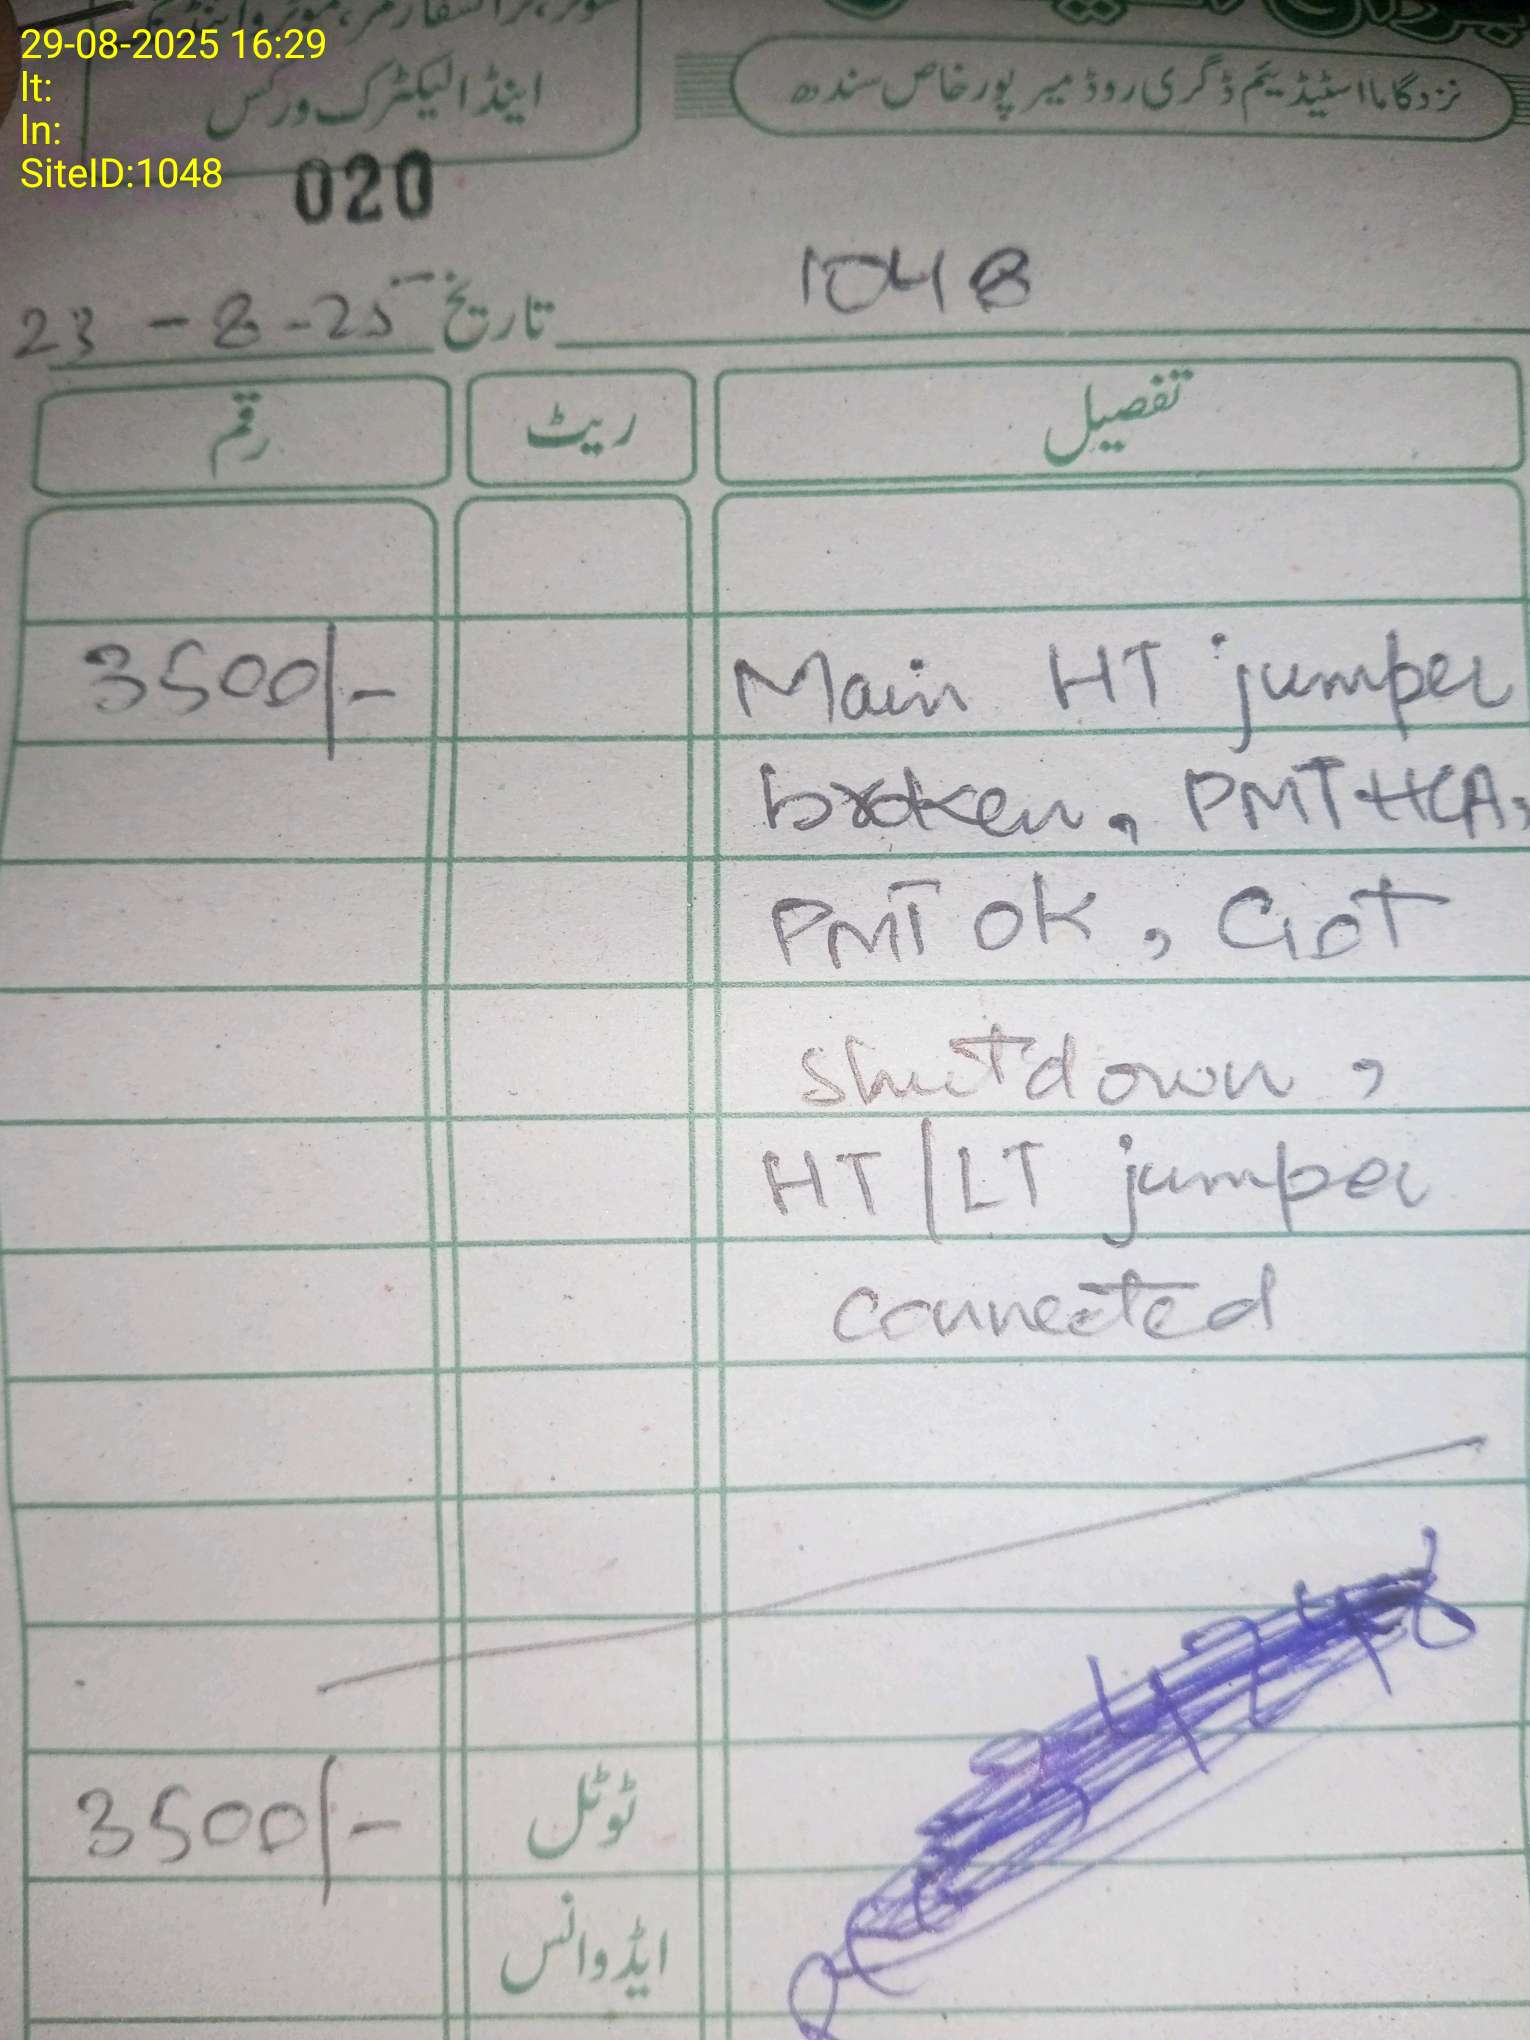 29-08-2025 16:29
lt:
ln:
SiteID:1048
اینڈ الیکٹرک ورکس
نزد گاما اسٹیڈیم ڈگری روڈ میرپورخاص سندھ
020
1048
تاریخ 23-8-25
تفصیل ریٹ رقم
Main HT jumper 3500/-
broken, PMT HCA,
PMT OK, Got
shutdown,
HT/LT jumper
connected
ٹوٹل 3500/-
ایڈوانس